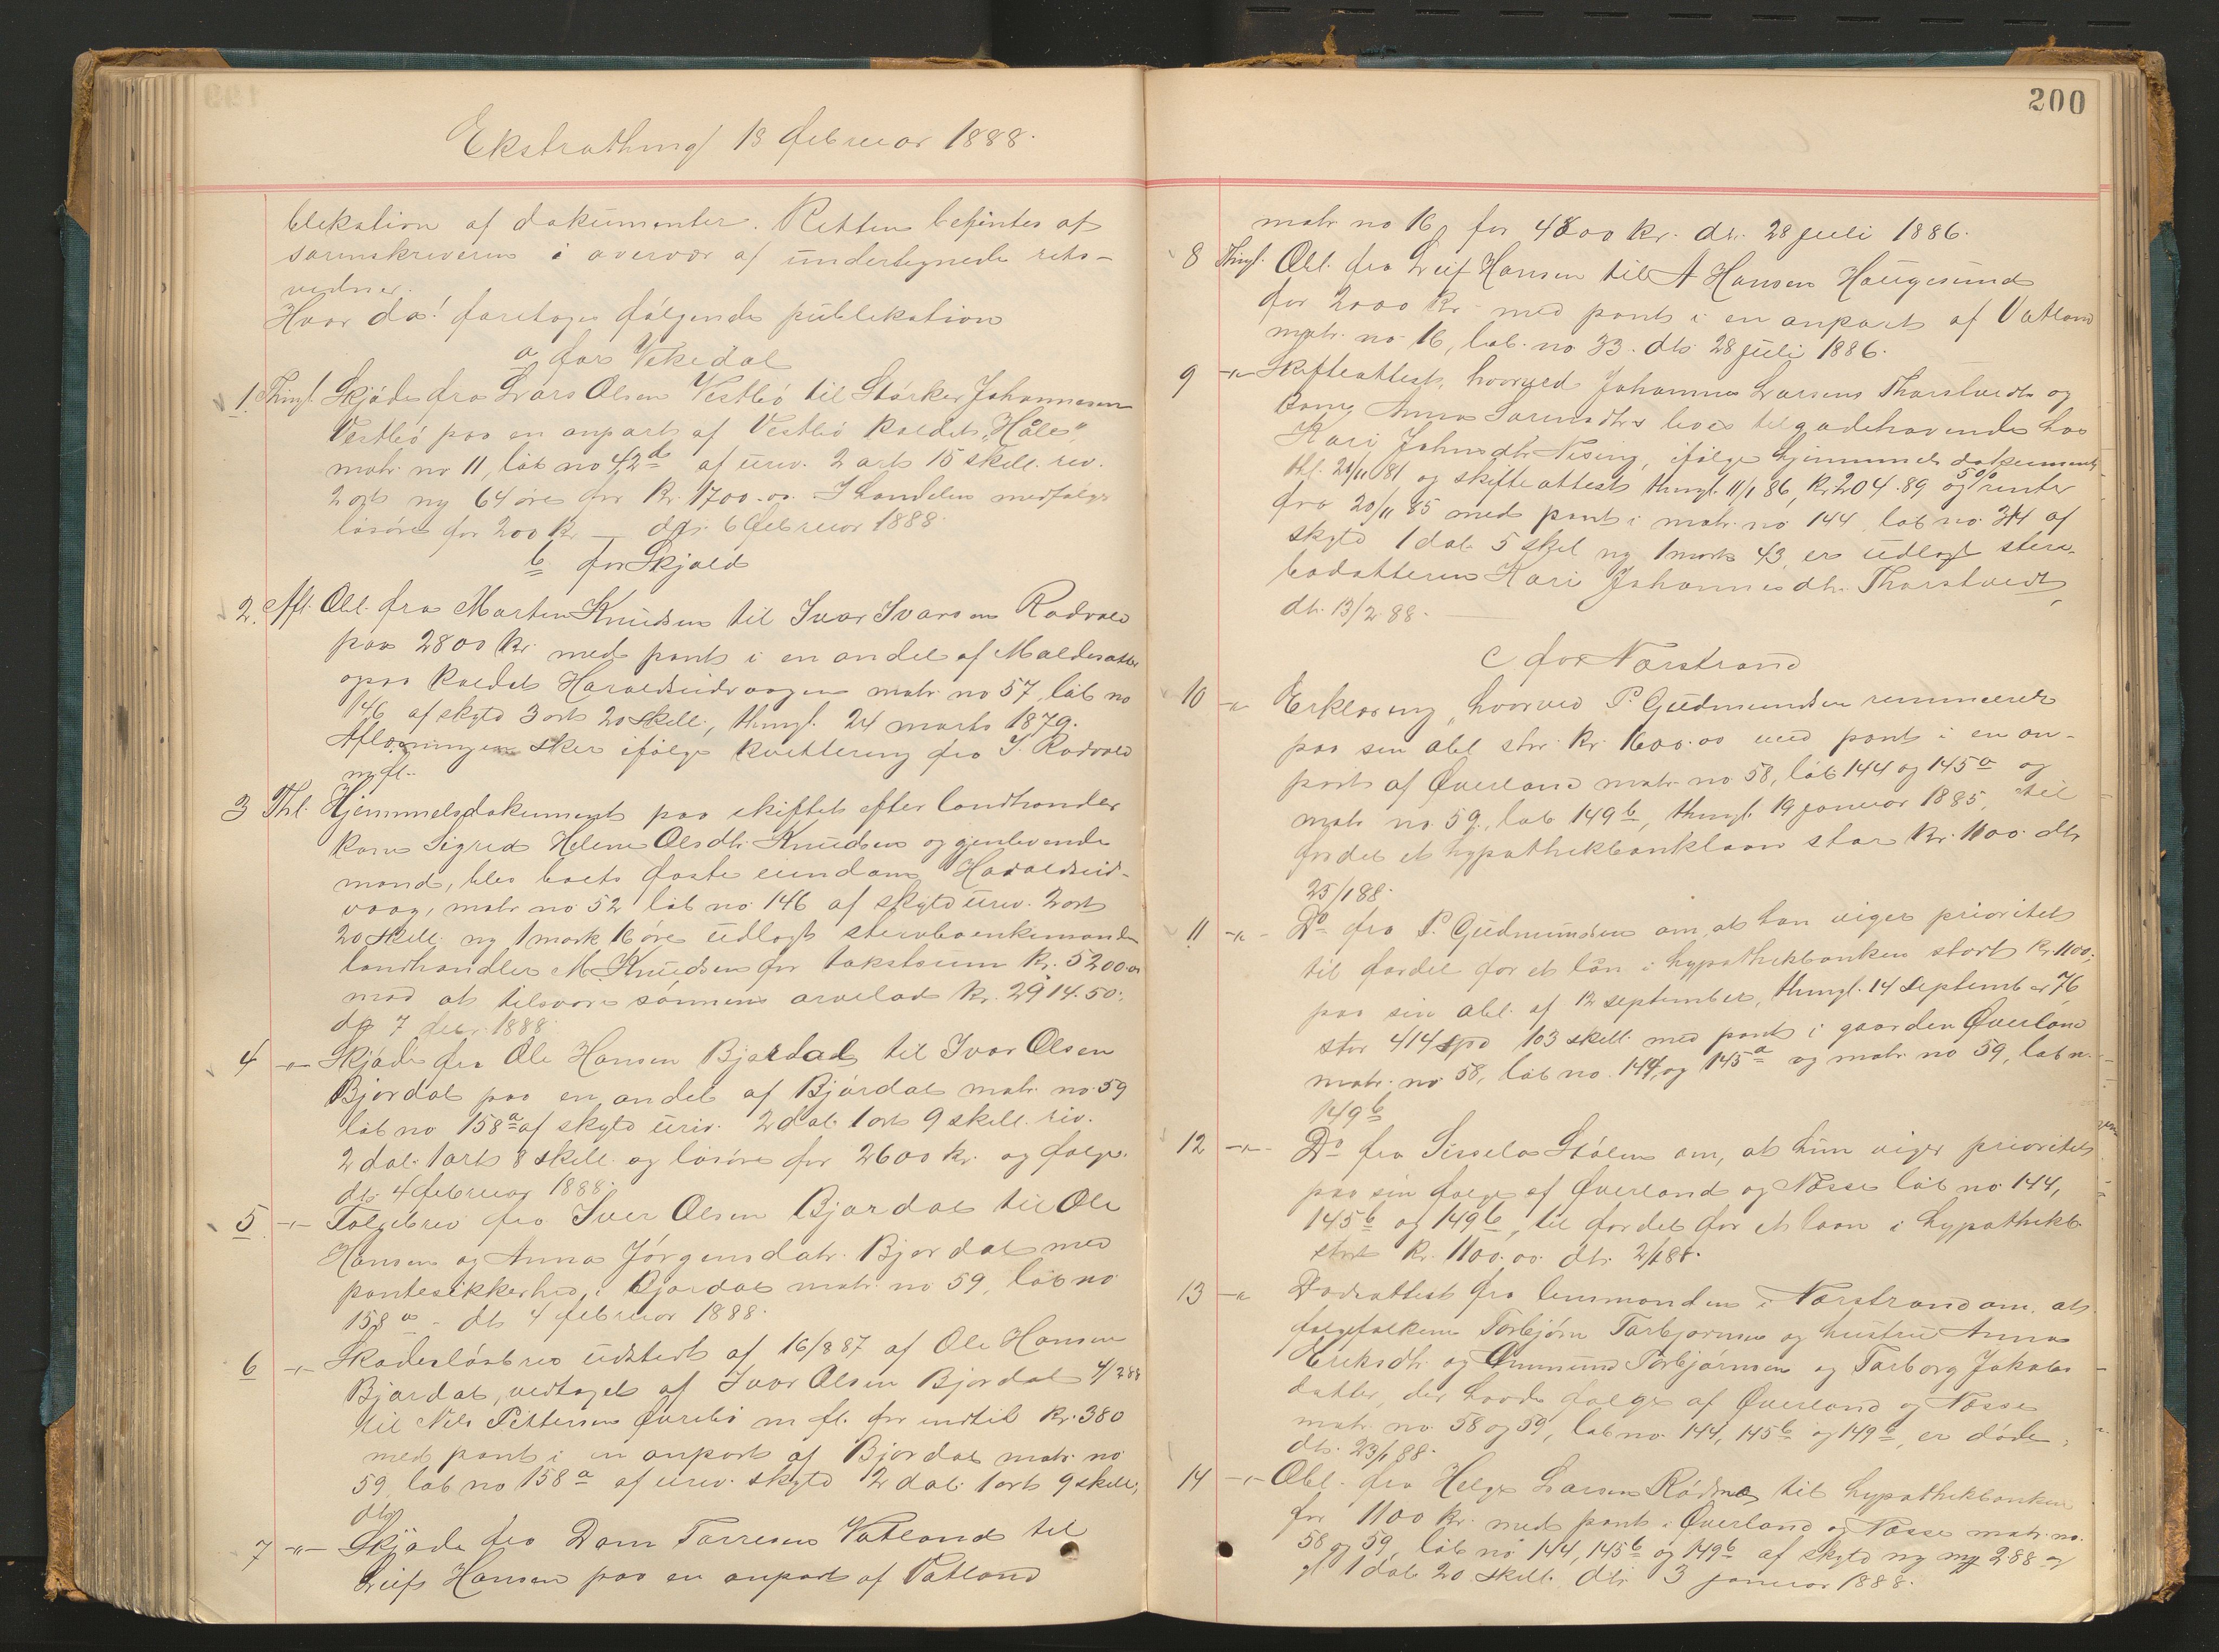 Ekstrathing 13 februar 1888.
blikation af dokumenter. Retten betjentes af
sorenskriveren i overvær af undertegnede rets-
vidner.
Hvor da! foretoges følgende publikation
a for Vikedal
1. Thingl. Skjøde fra Lars Olsen Vestbø til Størker Johannesen
Vestbø paa en anpart af Vestbø kaldet "Håle",
matr. no 11, løb no 42d af urev. 2 ort 15 skill. rev.
2 ort ny 64 øre for Kr. 1700.00. I handelen medfølger
løsøre for 200 Kr — dt. 6 februar 1888.
b for Skjold
2. Afl. Obl. fra Morten Knudsen til Ivar Ivarsen Rødvold
paa 2800 Kr. med pant i en andel af
ogsaa kaldet Haraldseidvaagen matr. no 57, løb no
146 af skyld 3 ort 20 skill., thingl. 24 marts 1879.
Aflæsningen sker ifølge kvittering fra I. Rødvold
m. fl.
3 Thl. Hjemmelsdokument paa skiftet efter landhandler
kone Sigrid Helene Olsdtr. Knudsen og gjenlevende
mand, blev boets faste eiendom Haraldseid-
vaag, matr no 52 løb no 146 af skyld urev. 2 ort
20 skill. ny 1 mark 16 øre udlagt stervboenkemand
landhandler M. Knudsen for takstsum Kr. 5200.00
mod at tilsvare sønnens arvelod Kr. 2914.50.
dt 7 1888.
4 -"- Skjøde fra Ole Hansen Bjordal til Ivar Olsen
Bjordal paa en andel af Bjørdal matr. no 59
løb no 158a af skyld urev. 2 dal. 1 ort 9 skill. rev.
2 dal. 1 ort 8 skill. og løsøre for 2600 kr. og folge.
dt. 4 februar 1888.
5 -"- Folgebrev fra Iver Olsen Bjordal til Ole
Hansen og Anna Jørgensdatr. Bjordal med
pantesikkerhed i Bjordal matr. no 59, løb no
158 a - dt 4 februar 1888.
6 -"- Skadesløsbrev udstedt af 16/8 87 af Ole Hansen
Bjordal, vedtaget af Ivar Olsen Bjordal 4/2 88
til Nils Pettersen Øvrebø m fl. for indtil Kr. 380
med pant i en anpart af Bjordal matr. no
59, løb no 158 a af urev. skyld 2 dal. 1 ort 9 skill,
dt
7 -"- Skjøde fra Torresen Vatland til
Leif Hansen paa en anpart af Vatland
200
matr. no 16, for 4800 Kr. dt. 28 juli 1886.
8 Thingl. Obl. fra Leif Hansen til A Hansen Haugesund
for 2000 Kr. med pant i en anpart af Vatland
matr. no. 16, løb. no 33. dt. 28 juli 1886.
9 -"- Skifteattest, hvorved Johannes Larsens Tharstvedt og
kone Anna boes tilgodehavende hos
Kari Johnsdtr. Nising, ifølge hjemmels dokument
thl. 21/11 81 og skifteattest thingl. 11/1 86, Kr 204.89 og 5% renter
fra 20/11 85 med pant i matr. no 144, løb no 314 af
skyld 1 dal. 5 skil ny 1 mark 43, er udlagt sterv-
bodatteren Kari Johannesdtr. Tharstvedt,
dt. 13/2 88.
c for Nærstrand
10 -"- Erklæring, hvorved P. Gudmundsen renuncerer
paa sin obl. stor Kr. 1600.00 med pant i en an-
part af Øverland matr. no 58, løb 144 og 145a og
matr. no. 59, løb 149b, thingl. 19 januar 1885, til
fordel et hypothekbanklaan stor Kr. 1100. dt
25/1 88.
11 -"- Do fra P. Gudmundsen om, at han viger prioritet
til fordel for et lån i hypothekbanken stort Kr 1100,
paa sin obl. af 12 september, thingl. 14 september 76,
stor 414 spd 103 skill. med pant i gaarden Øverland
matr. no 58, løb no. 144, og 145a og matr. no 59, løb n.
149b
12 -"- Do fra Sissela Stølen om, at hun viger prioritet
paa sin folge af Øverland og Næsse løb no 144,
145b og 149b, til fordel for et laan i hypothekb.
stort Kr. 1100.00. dt. 2/1 88.
13 -"- Dødsattest fra lensmanden i Nærstrand om, at
folgefolkene Torbjørn Torbjørnsen og hustru Anna
Eriksdtr. og Ommund Torbjørnsen og Torborg Jakobs
datter, der havde folge af Øverland og Næsse
matr. no 58 og 59, løb no. 144, 145b og 149b, er døde,
dt. 23/1 88.
14 -"- Obl. fra Helge Larsen til hypothekbanken
for 1100 Kr. med pant i Øverland og Næsse matr. no.
58 og 59, løb no 144, 145b og 149b af skyld ny m 2 88 og
gl 1 dal. 20 skill. dt. 3 januar 1888.